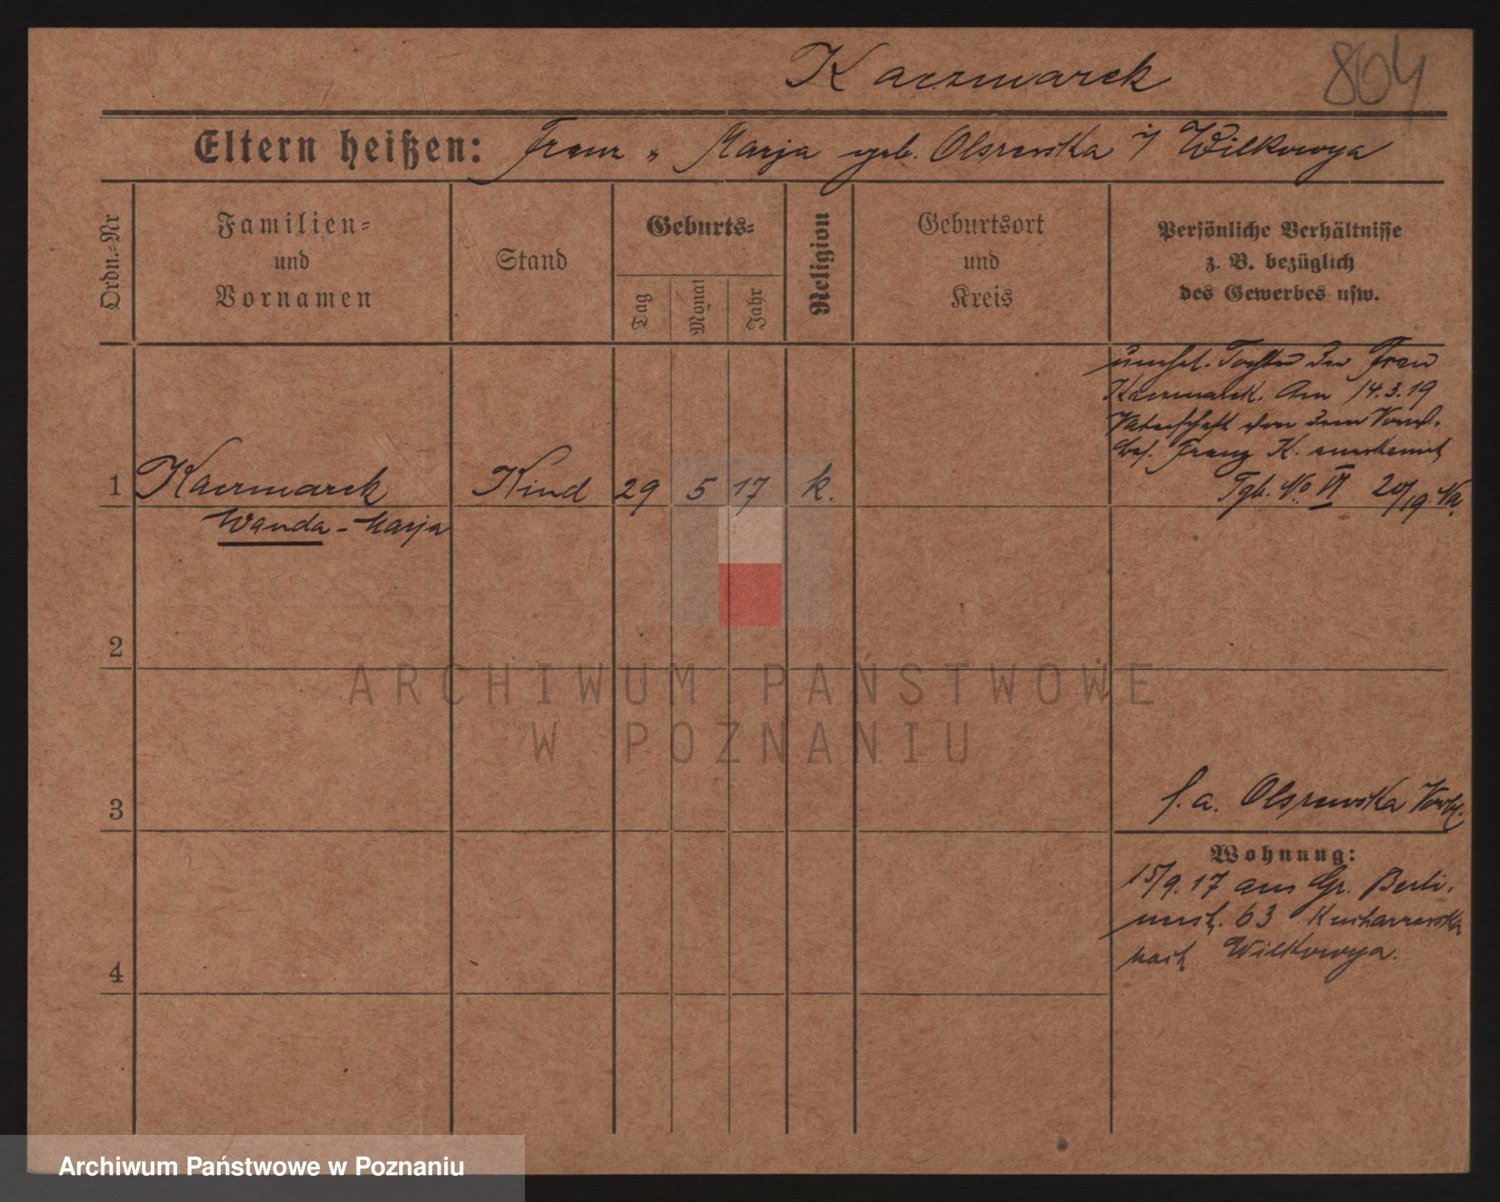 Kaczmarek 804
Eltern heißen: Franz u. Marja geb. Olszewska i/ Wilkowya
Ordn.-Nr
Familien-
und
Vornamen
Stand
Geburts-
Tag
Monat
Jahr
Religion
Geburtsort
und
Kreis
Persönliche Verhältnisse
z. B. bezüglich
des Gewerbes usw.
unehel. Tochter der Frau
Kaczmarek. Am 14.3.19
Vaterschaft von dem
Franz K. anerkannt
Tgb. No VI 20/19
1 Kaczmarek Kind 29 5 17 k.
Wanda-Marja
2
3
4
s. a. Olszewska
Wohnung:
15/9.17 aus Gr. Berli-
nerst. 63
nach Wilkowya.
ARCHIWUM PAŃSTWOWE
W POZNANIU
Archiwum Państwowe w Poznaniu